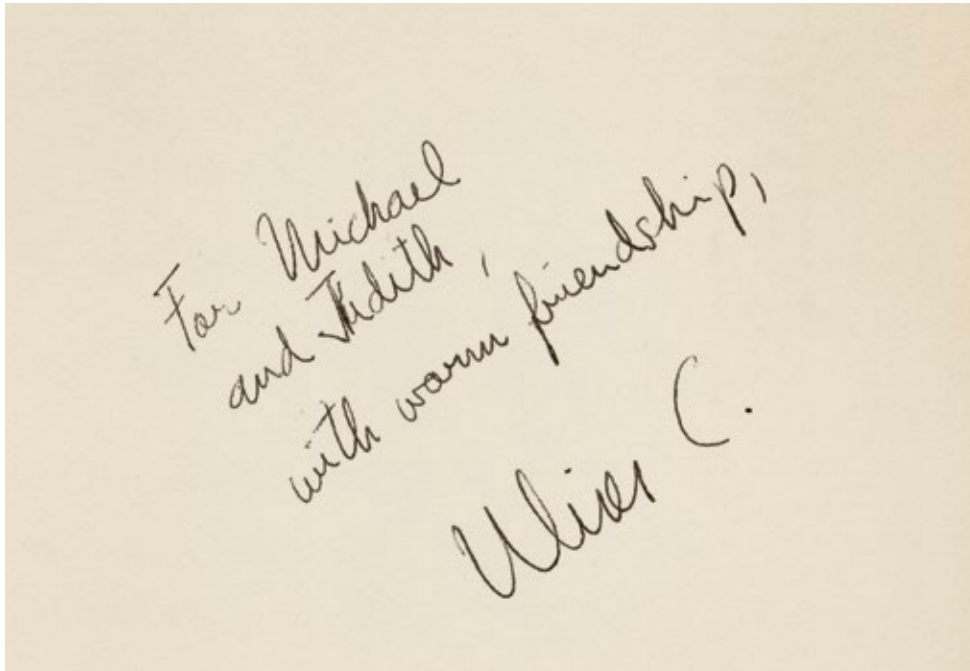 For Michael
and Judith,
with warm friendship,
Ulises C.